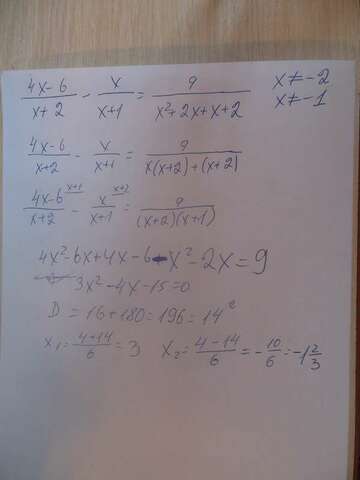 (4x-6)/(x+2) - x/(x+1) = 9/(x²+2x+x+2) x≠-2
x≠-1
(4x-6)/(x+2) - x/(x+1) = 9/(x(x+2)+(x+2))
(4x-6)/(x+2) ^(x+1) - x/(x+1) ^(x+2) = 9/((x+2)(x+1))
4x²-6x+4x-6-x²-2x=9
3x²-4x-15=0
D = 16+180=196=14²
x₁=(4+14)/6=3 x₂=(4-14)/6=-10/6=-1 2/3